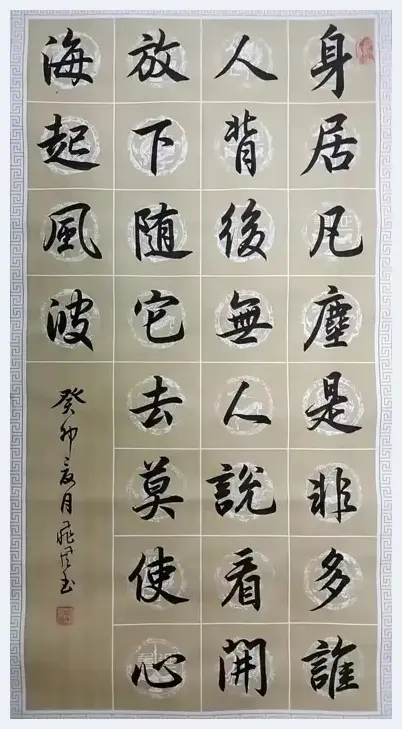 身居凡塵是非多誰
人背後無人說看開
放下随它去莫使心
海起風波
癸卯